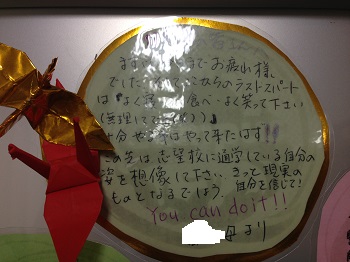 お疲れ様
でした。ここからのラストスパート
は よく寝て よく食べ よく笑って下さい
(無理にでも!)
十分やる事はやって来たはず!!
この先は志望校に通学している自分の
姿を想像して下さい きっと現実の
ものとなるでしょう。自分を信じて!
You can do it!!
母より